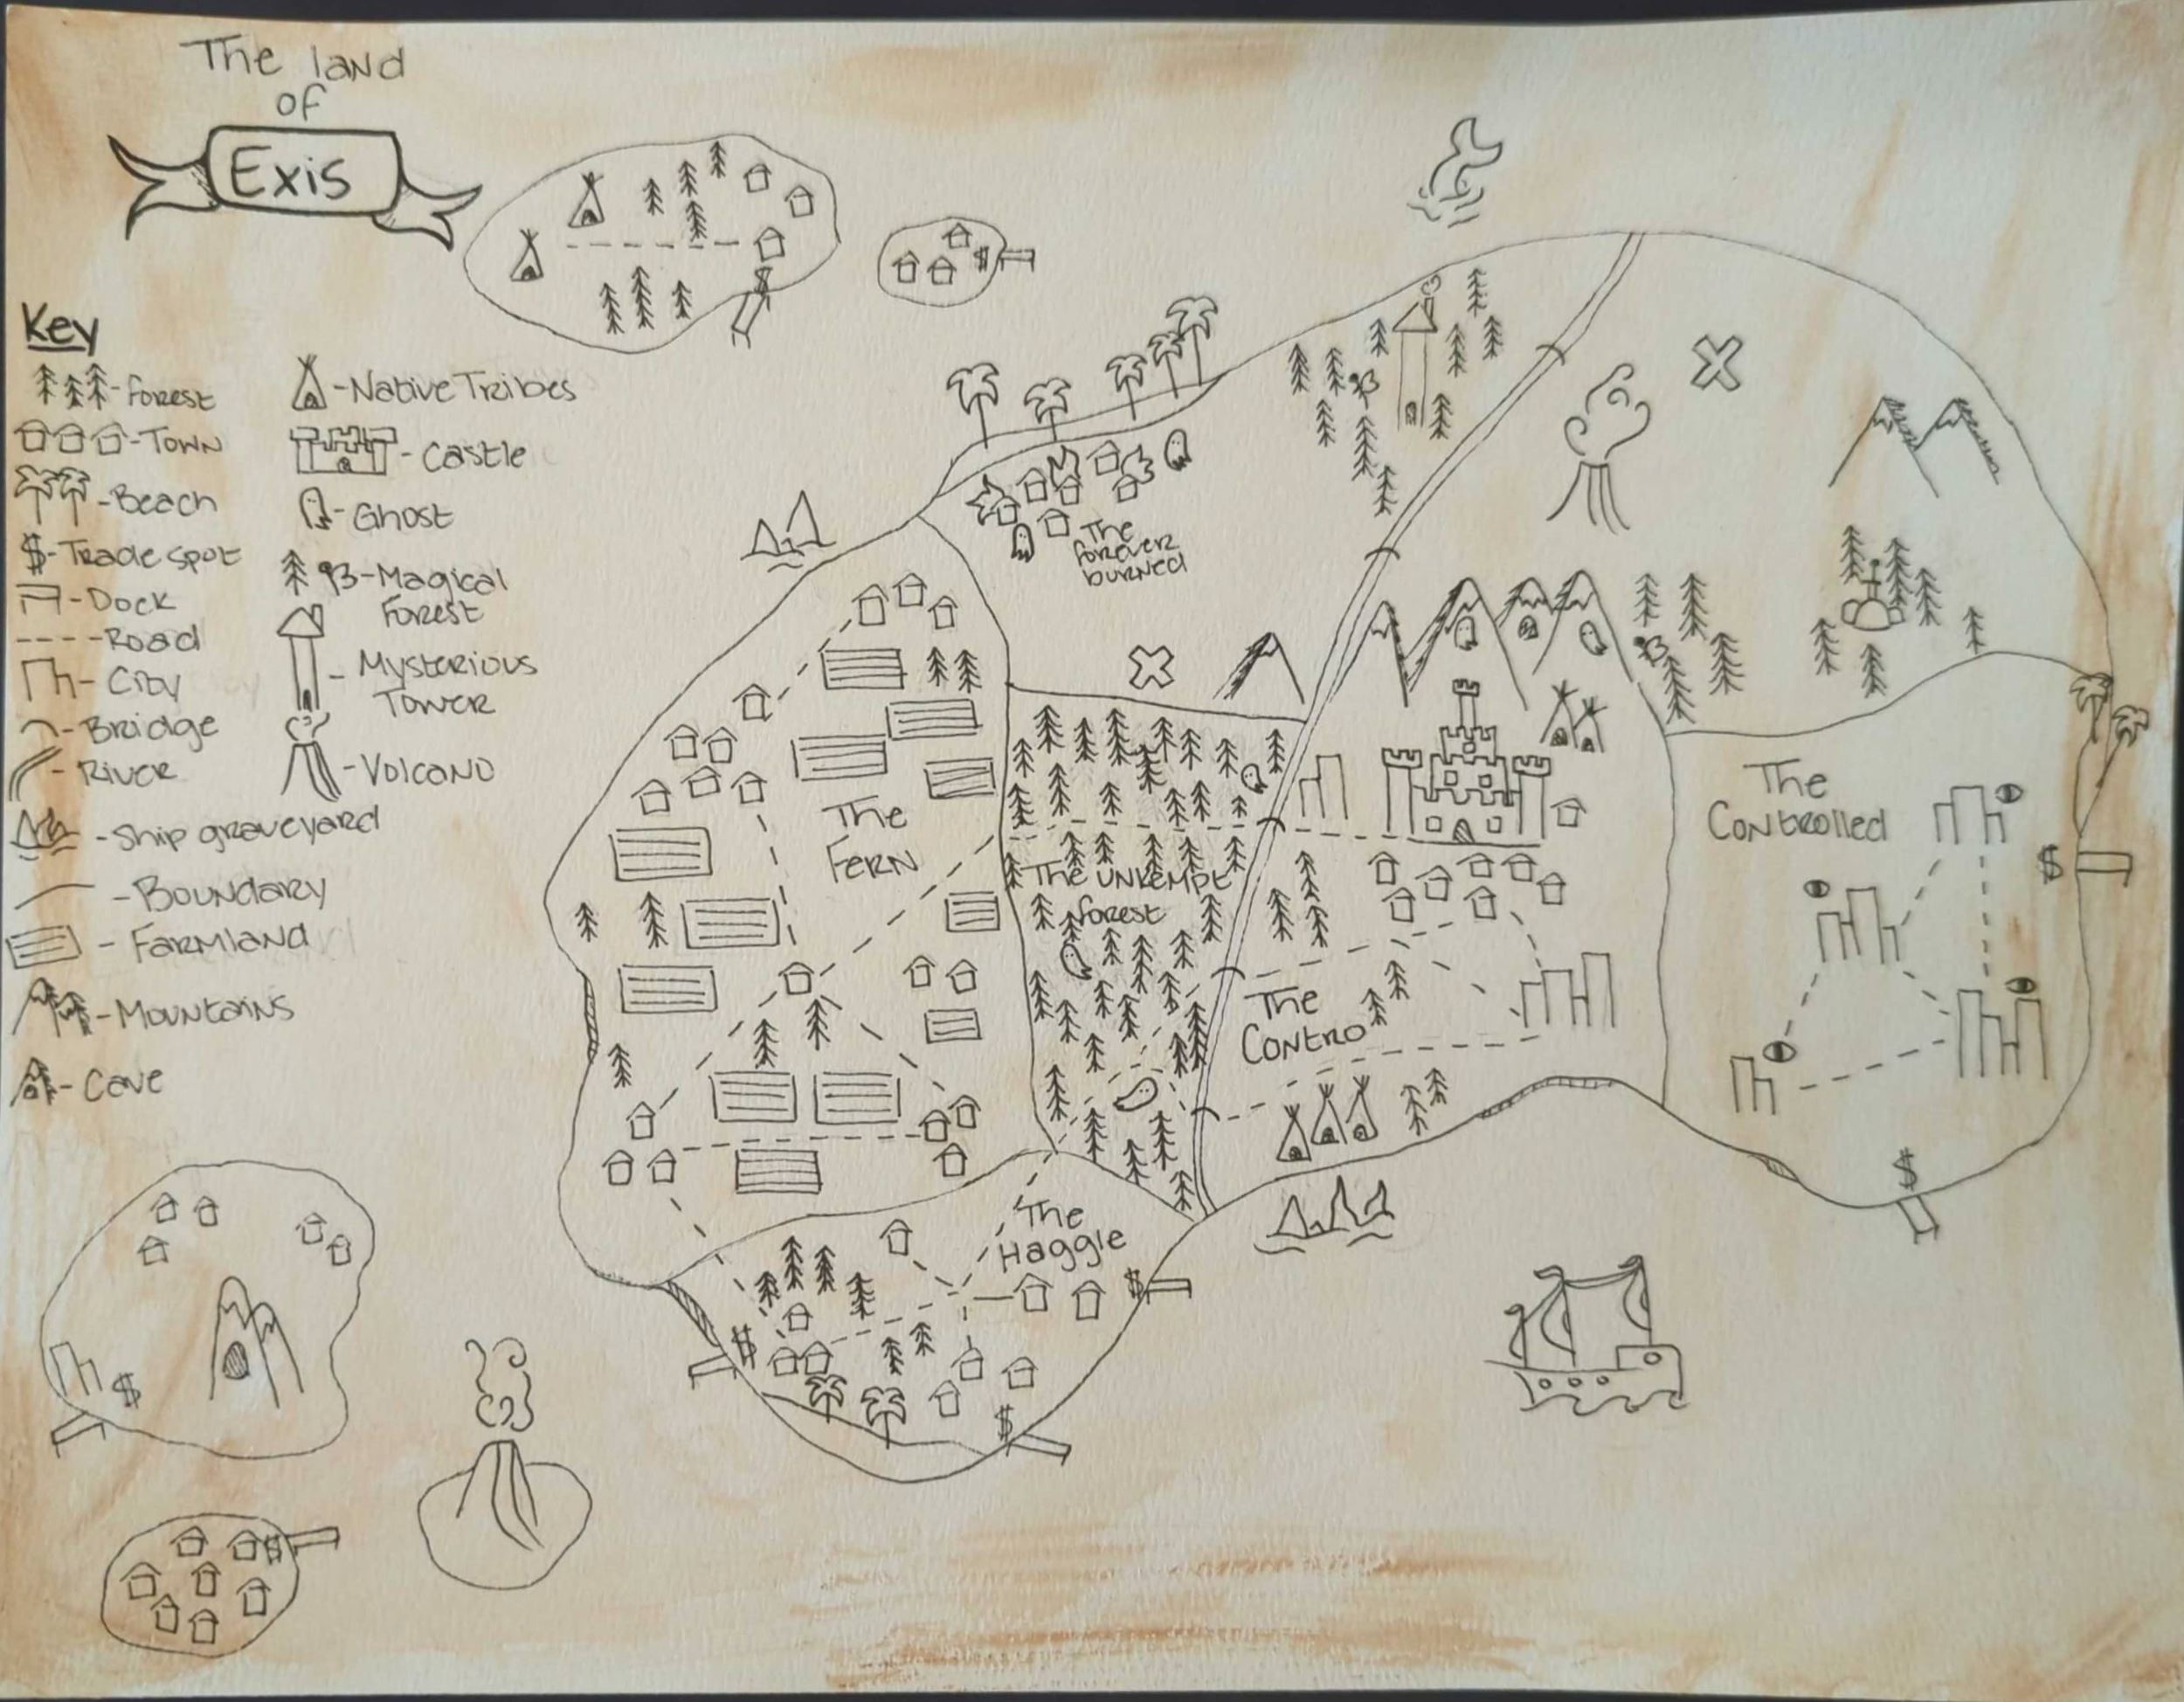 The land
of
Exis
Key
- Forest
- Town
- Beach
$ - Trade spot
- Dock
- Road
- City
- Bridge
- River
- Ship graveyard
- Boundary
- Farmland
- Mountains
- Cave
- Native Tribes
- Castle
- Ghost
- Magical
Forest
- Mysterious
Tower
- Volcano
$
$
The
forever
burned
The
Fern
The unkempt
forest
The
Contro
The
Controlled
$
$
The
Haggle
$
$
$
$
$